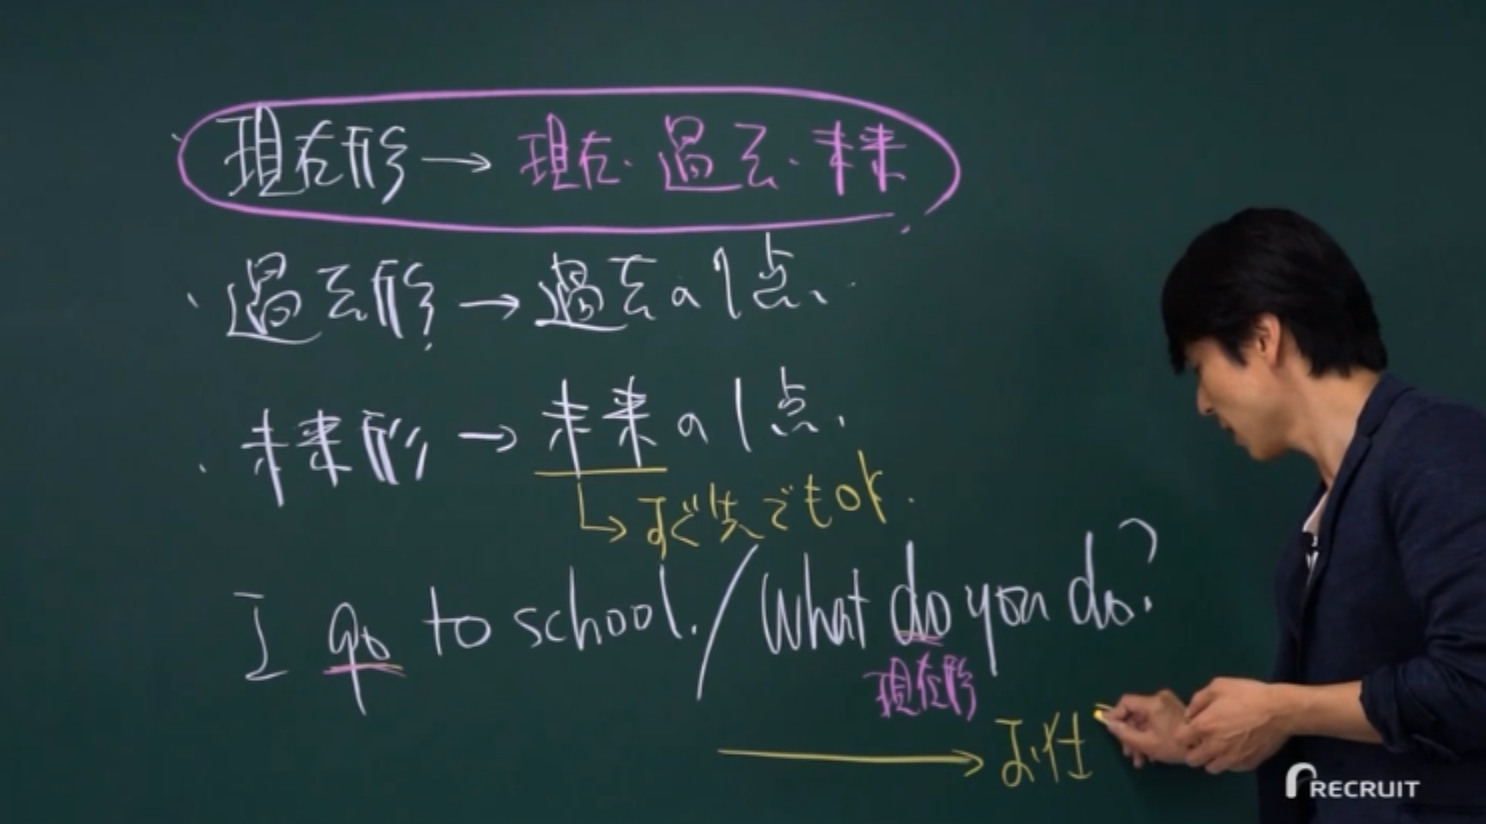 現在形→現在・過去・未来
・過去形→過去の1点、
・未来形→未来の1点.
↳すぐ先でもOK.
I go to school. / What do you do?
現在形
→お仕
RECRUIT